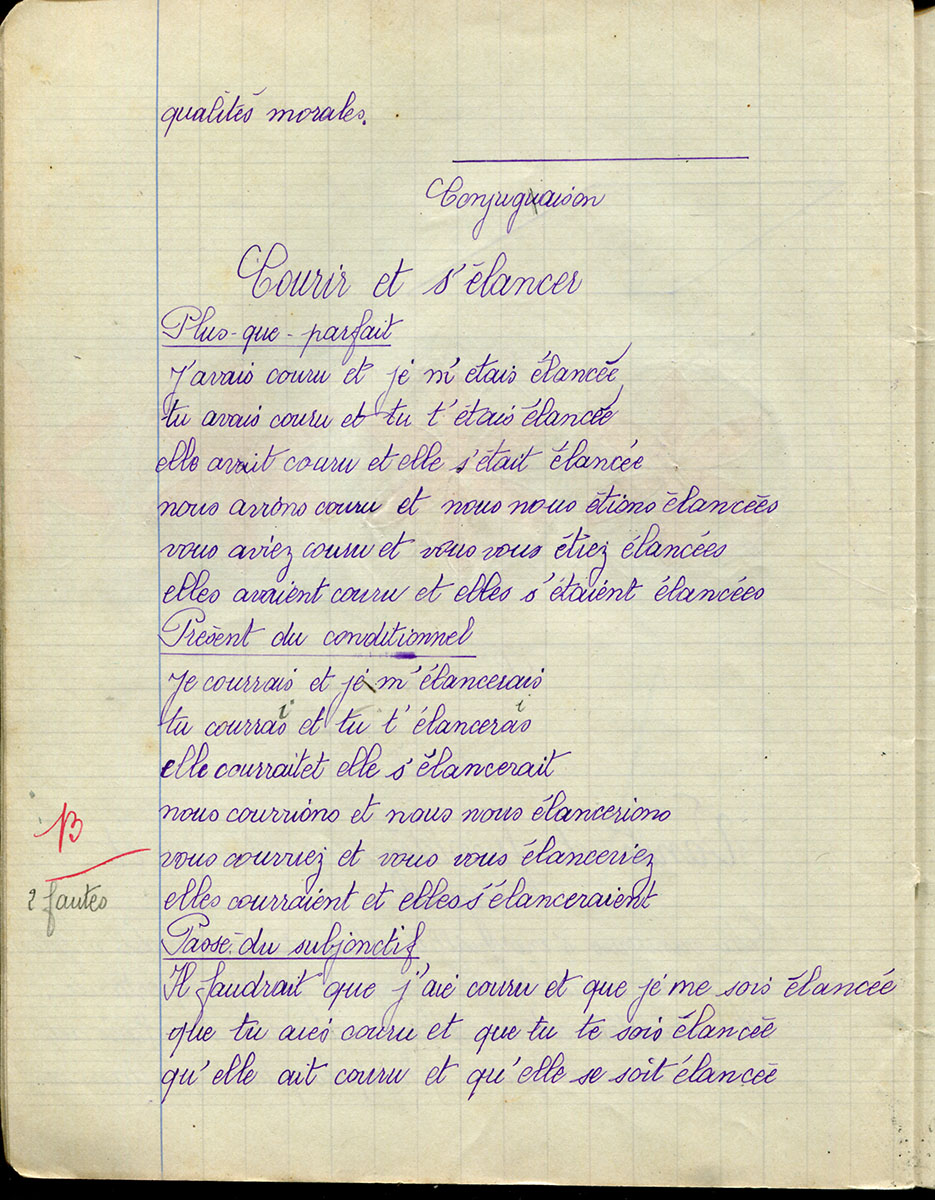 qualités morales.
Conjuguaison
Courir et s'élancer
Plus-que-parfait
J'avais couru et je m'etais élancée
tu avais couru et tu t'étais élancée
elle avait couru et elle s'était élancée
nous avions couru et nous nous étions élancées
vous aviez couru et vous vous étiez élancées
elles avaient couru et elles s'étaient élancées
Présent du conditionnel
Je courrais et je m'élancerais
tu courrais et tu t'élancerais
elle courrait et elle s'élancerait
nous courrions et nous nous élancerions
vous courriez et vous vous élanceriez
B
elles courraient et elles s'élanceraient
2 fautes
Passé du subjonctif
Il faudrait que j'aie couru et que je me sois élancée
que tu aies couru et que tu te sois élancée
qu'elle ait couru et qu'elle se soit élancée